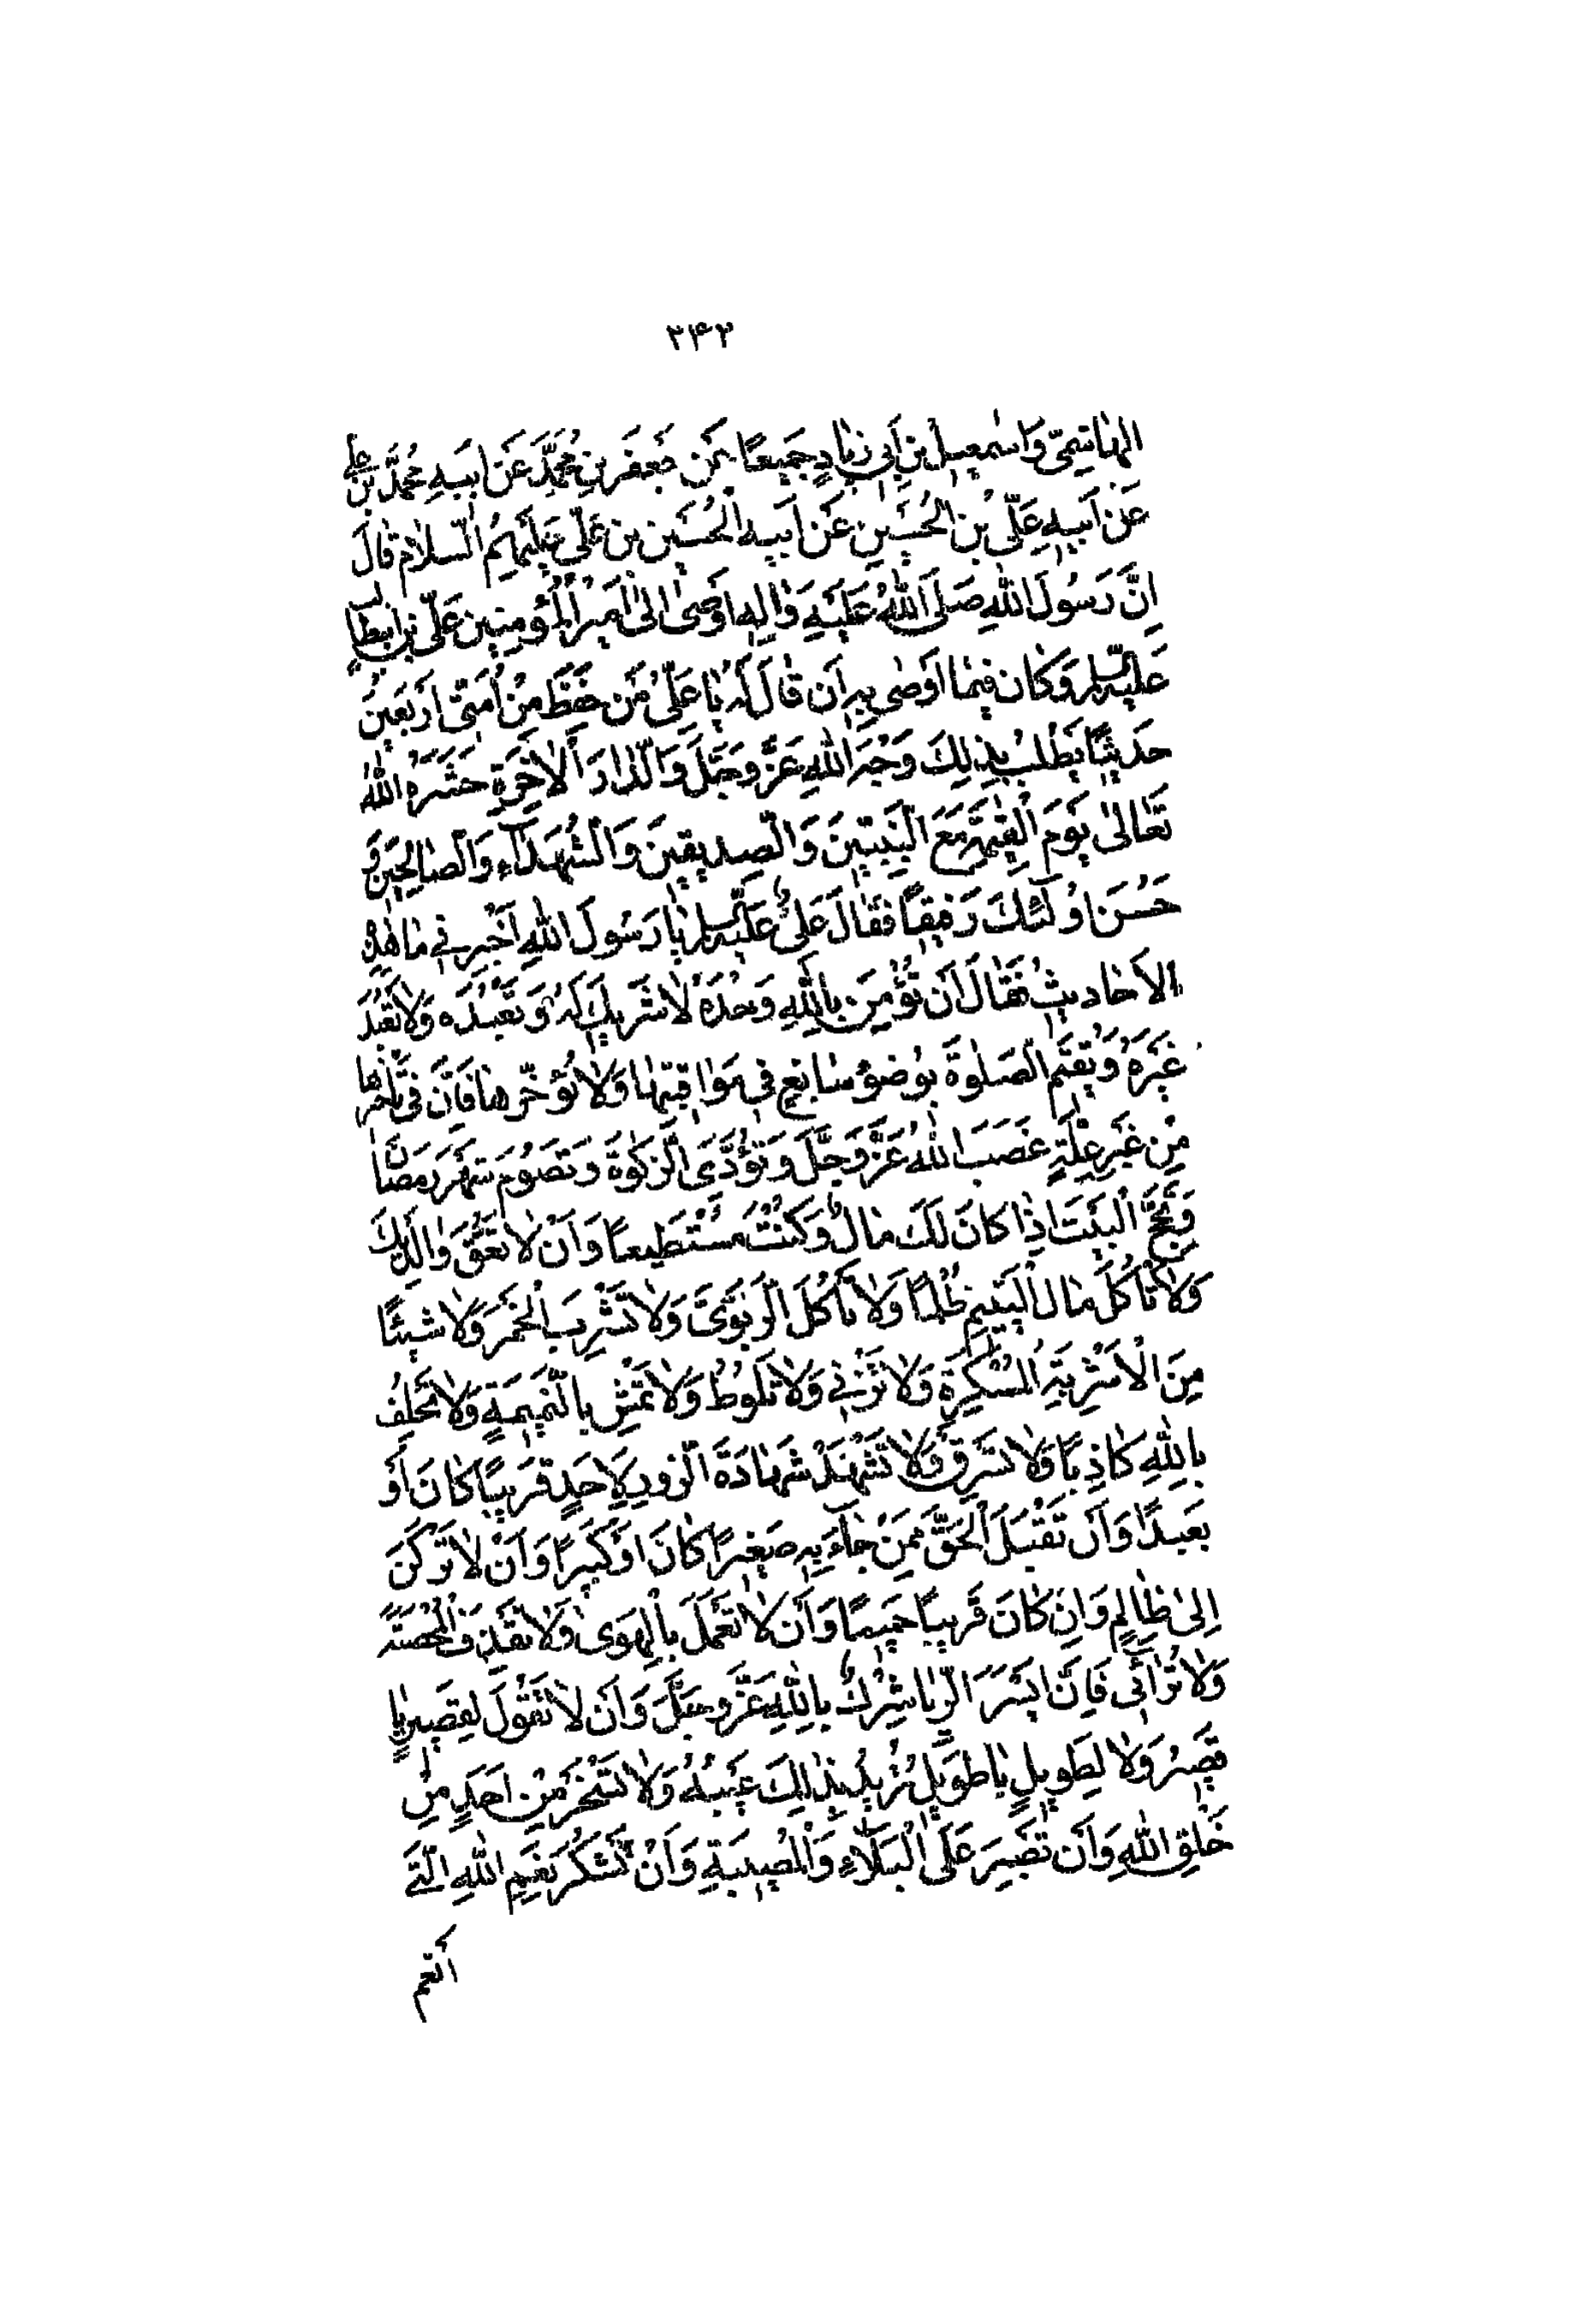 ۲۴۲
الهٰاشِمِیّ وَاسْمٰعیٖلِ بنِ اَبی زِیٰادٍ جَمیٖعًا عَن جَعفَرِبنِ مُحَمَّدٍ عَن اَبیٖهِ مُحَمَّدِبنِ عَلِیٍّ
عَن اَبیٖهِ عَلِّی بْنِ الْحُسَیْنِ عَن اَبیٖهِ الْحُسَیْنِ بنِ عَلّیٍ عَلَیْهِمُ السَّلامُ قٰالَ
اِنَّ رَسُولَ اللّٰهِ صَلَّی اللّٰهُ عَلَیْهِ وَاٰلِهِ اَوْصیٰ اِلیٰ اَمیٖرِ الْمُؤْمِنیٖنَ عَلّیِ بنِ ابیطالِبٍ
عَلَیْهِ السَّلٰمُ وَکٰانَ فیٖمٰا اَوْصٰی بِهِ اَن قٰالَ لَهُ یٰا عَلِّیُ مَن حَفِظَ مِنْ اُمَتّی اَرْبَعیٖنَ
حَدیٖثًا یَطْلُبُ بِذٰلِكَ وَجْهَ اللّٰهِ عَزَّ وَجَلَّ وَالدّٰارَ الْاٰخِرَةِ حَشَرَهُ اللّٰهُ
تَعٰالیٰ یَوْمَ الْقِیٰمَةِ مَعَ النَّبِیّیٖنَ وَالصِدیٖقیٖنَ وَالشُهَدٰآءِ وَالصٰالِحیٖنَ وَ
حَسُنَ اُولٰئِكَ رَفیٖقًا فَقٰالَ عَلِیٌّ عَلَیْهِ السَّلٰمُ یٰا رَسُولَ اللّٰهِ اَخْبِرْنی مٰا هٰذِهِ
الاَحٰادیٖثُ فَقٰالَ اَن تُؤْمِنَ بِاللّٰهِ وَحْدَهُ لٰا شَریٖكَ لَهُ وَ تَعْبُدَه وَلاٰ تَعْبُدَ
غَیْرَهُ وَ تُقیٖمَ الصَلٰوةَ بِوُضُوءٍ سٰابِغٍ فی مَوٰاقیٖتِهٰا وَلاٰ تُؤَخِّرهٰا فَاِنَّ فی تَأخیٖرِهٰا
مِن غَیْرِ عِلَّةٍ غَضَبَ اللّٰهِ عَزَّوَجَّلَ وَ تُؤَدِّیَ الزَّکٰوةَ وَ تَصُومَ شَهْرَ رَمَضٰانَ
وَتَحُجَّ الْبَیْتَ اِذٰا کٰانَ لَكَ مٰالٌ وَکُنْتَ مُسْتَطیٖعًا وَاَنْ لاٰ تَعُقَّ وٰالِدَیْكَ
وَلاٰ تَأْکُلَ مٰالَ الْیَتیٖمِ ظُلمًا وَلاٰ تَأْکُلَ الرِّبوٰی وَلاٰ تَشْرِبَ الْخَمْرَ وَلاٰ شَیْئًا
مِنَ الْاَشْرِبَةِ الْمُسْکِرَةِ وَلاٰ تَزْنِیَ وَلاٰ تَلُوطَ وَلاٰ تَمْشِ بِالنَّمیٖمَةِ وَلاٰ تَحْلِفْ
بِاللّٰهِ کٰاذِبًا وَلاٰ تَسْرِقْ وَلاٰ تَشْهَدْ شَهٰادَةَ الزّورِ لِاَحَدٍ قَریٖبًا کٰانَ اَوْ
بَعیٖدًا وَاَن تَقْبَلَ الْحَقَّ مِمَنْ جٰآءَ بِهِ صَغیٖرًا کٰانَ اَوْ کَبیٖرًا وَاَنْ لاٰ تَرْکَنَ
اِلیٰ ظٰالِمٍ وَاِن کٰانَ قَریٖبًا حَمیٖمًا وَاَن لاٰ تَعْمَلَ بِالْهَوٰی وَلاٰ تَقْذِفَ الْمُحْصَنَةَ
وَلاٰ تُرٰائیَ فَاِنَّ اَیْسَرَ الرِّیٰا شِرْكٌ بِاللّٰهِ عَزَّ وجَلَّ وَاَن لاٰ تَقُولَ لِقَصیٖرٍ یٰا
قَصیٖرُ وَلاٰ لِطَویٖلٍ یٰا طَویٖلُ تُریٖدُ بِذٰلِكَ عَیْبَهُ وَلاٰ تَسْخَرَ مِنْ اَحَدٍ مِنْ
خَلْقِ اللّٰهِ وَاَن تَصْبِرَ عَلَی الْبَلآءِ وَالْمُصیٖبَةِ وَاَنْ تَشْکُرَ نِعَمِ اللّٰهِ الَّتی
اَنعَم